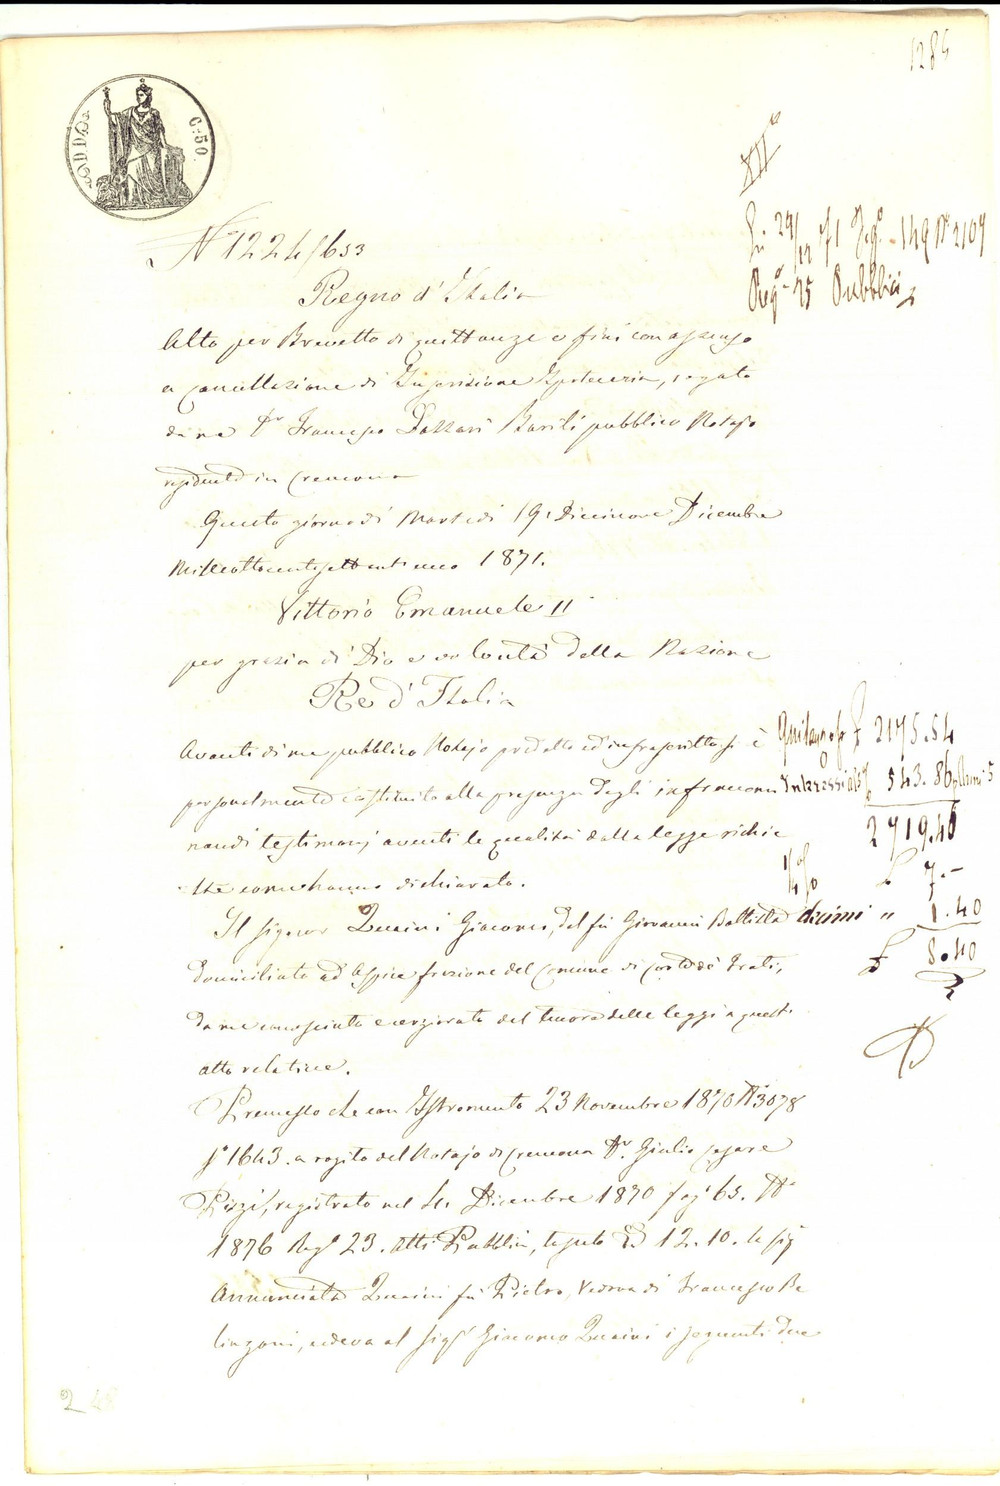 1285
C. 50
XII°
Li 29/12 71 Reg° 149 N° 2109
Reg° 25 Pubblici
N° 1224/653
Regno d'Italia
Atto per Brevetto di quittanza a fini con assenso
a cancellazione di Inscrizione Ipotecaria, rogato
da me Dr Francesco Barili pubblico Notajo
residente in Cremona
Questo giorno di Martedì 19. Diecinove Dicembre
Milleottocentosettantuno 1871.
Vittorio Emanuele II
per grazia di Dio e volontà della Nazione
Re d'Italia
Avanti di me pubblico Notajo predetto ed infrascritto si è
personalmente costituito alla presenza degli infranomi
nandi testimonj aventi le qualità dalla legge richie
ste come hanno dichiarato.
Quitanza £ 2175.54
Interessi 543.86 p anni 5
2719.40
£ 7.-
decimi " 1.40
£ 8.40
Il Signor Quaini Giacomo, del fu Giovanni Battista
domiciliato ad Aspice frazione del Comune di Corte de' Frati,
da me conosciuto e cerziorato del tenore delle leggi a questo
atto relative.
Premesso che con Istromento 23 Novembre 1870 N° 3078
1643. a rogito del Notajo di Cremona Dr. Giulio Cesare
Pizzi, registrato nel 4. Dicembre 1870 fog° 65. N°
1876 Reg° 23. Atti Pubblici, tassato £ 12.10. la Sigª
Annunciata Quaini fu Pietro, Vedova di Francesco Be
linzoni, cedeva al Sigr Giacomo Quaini i seguenti due
2 48